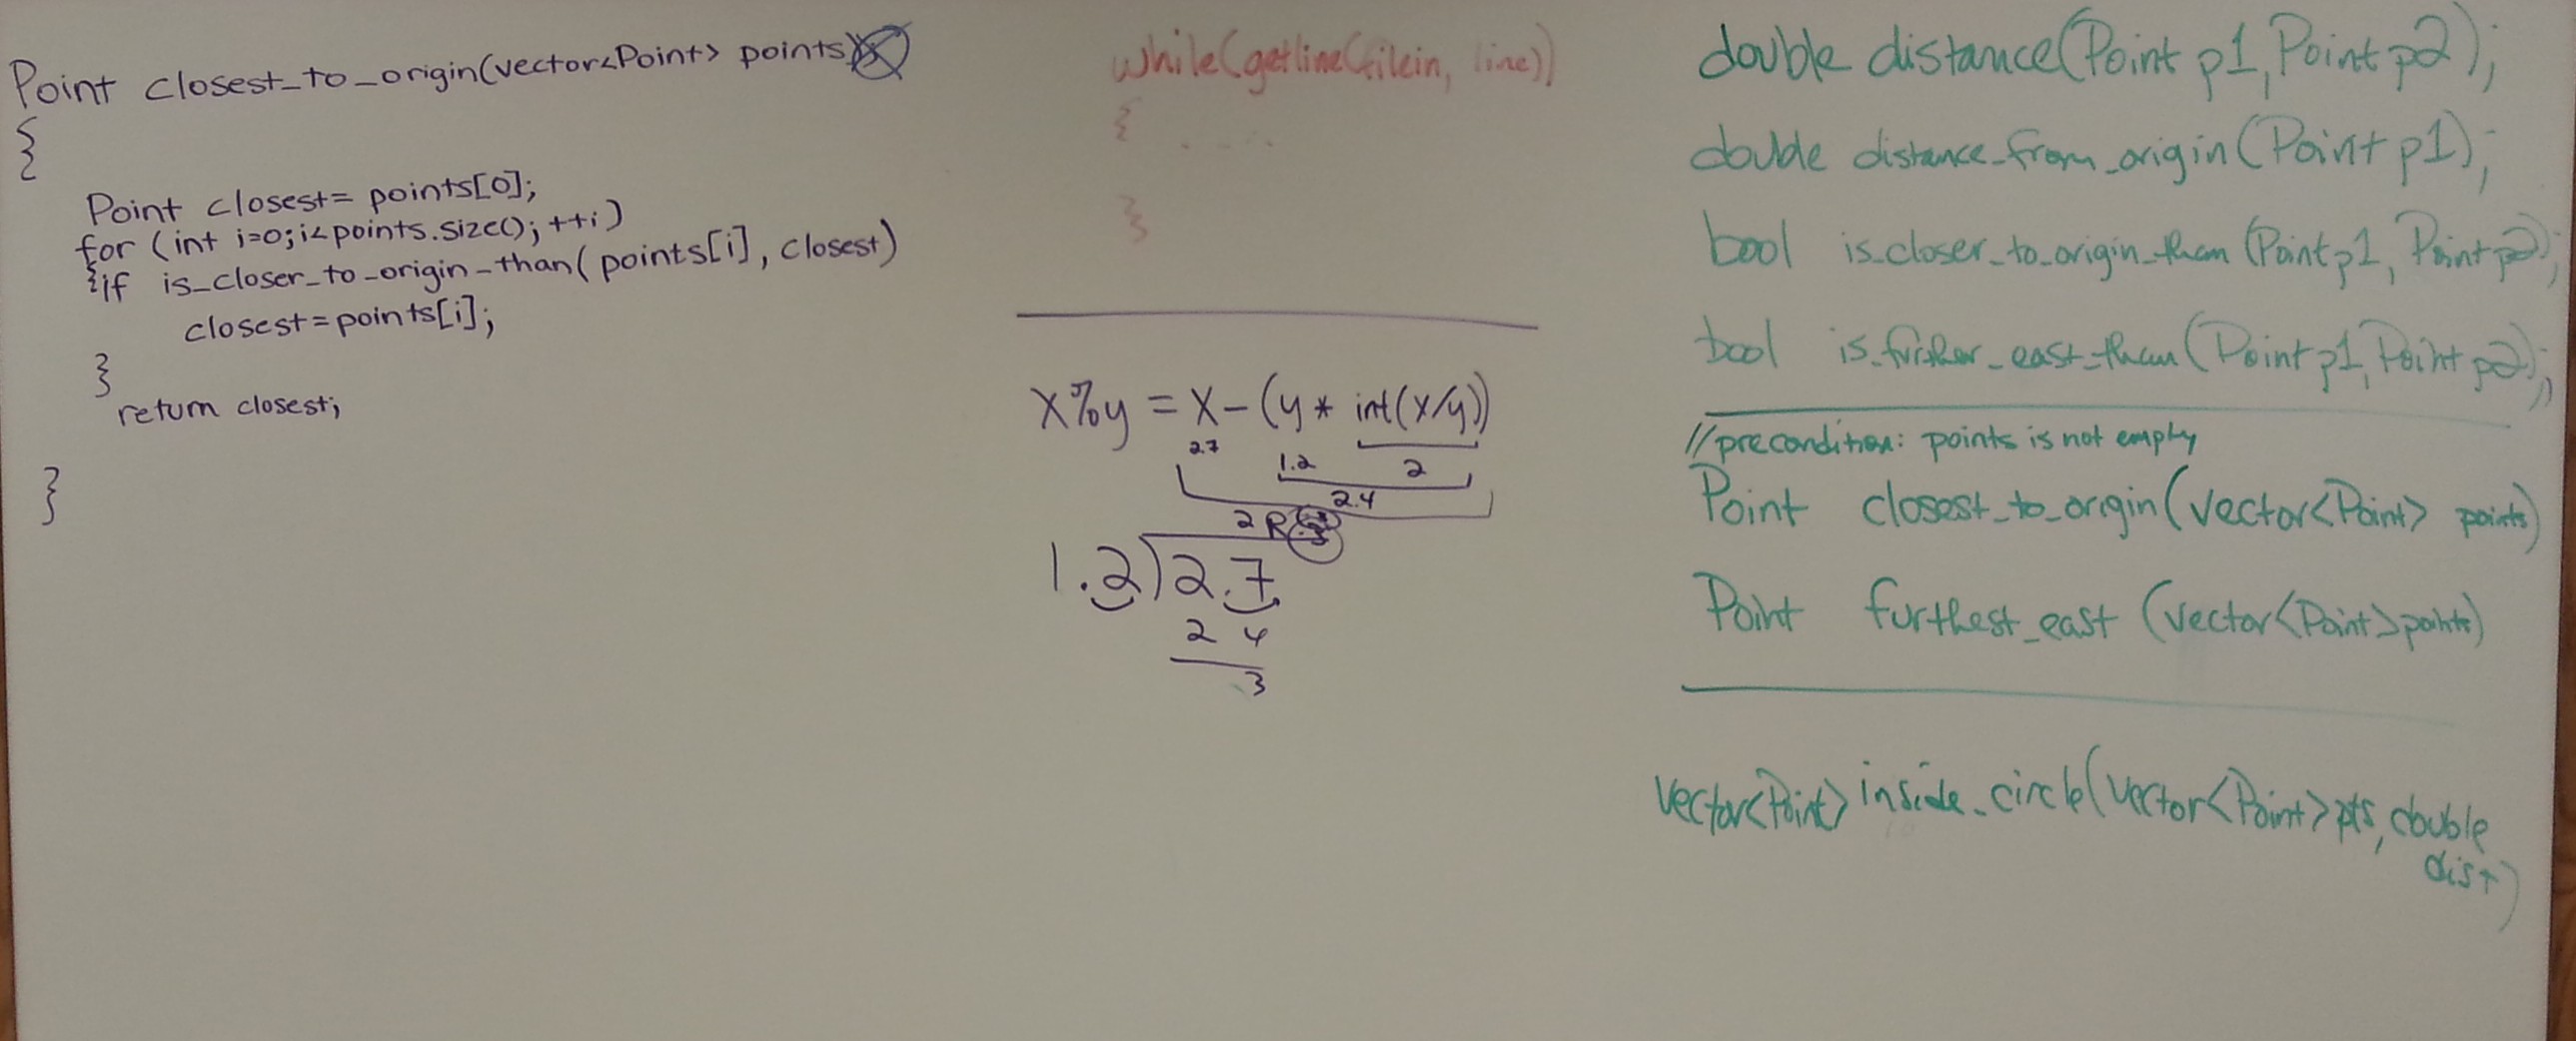 Point closest_to_origin(vector<Point> points)
{
Point closest= points[0];
for (int i=0;i<points.size(); ++i)
{if is_closer_to_origin_than( points[i], closest)
closest=points[i];
}
return closest;
}
while(getline(filein, line))
{
.....
}
x%y = x-(y* int(x/y))
2.7
1.2 2
2.4
2 R
1.2)2.7
2 4
.3
double distance(Point p1, Point p2);
double distance_from_origin(Point p1);
bool is_closer_to_origin_than (Point p1, Point p2);
bool is_further_east_than (Point p1, Point p2);
//precondition: points is not empty
Point closest_to_origin(vector<Point> points)
Point furthest_east (vector<Point> points)
vector<Point> inside_circle(vector<Point> pts, double
dist)